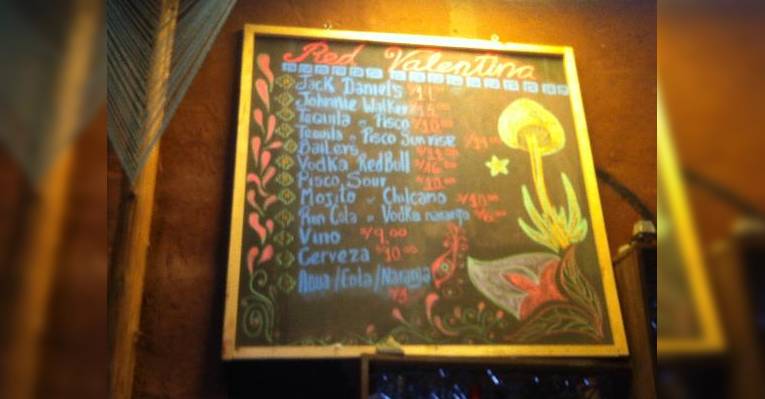 Red Valentina
Jack Daniel's
Johnnie Walker
Tequila o Pisco
Tequila o Pisco Sunrise
Baileys
Vodka RedBull
Pisco Sour
Mojito o Chilcano
Ron Cola o Vodka naranja
Vino S/9.00
Cerveza S/10.00
Agua/Cola/Naranja